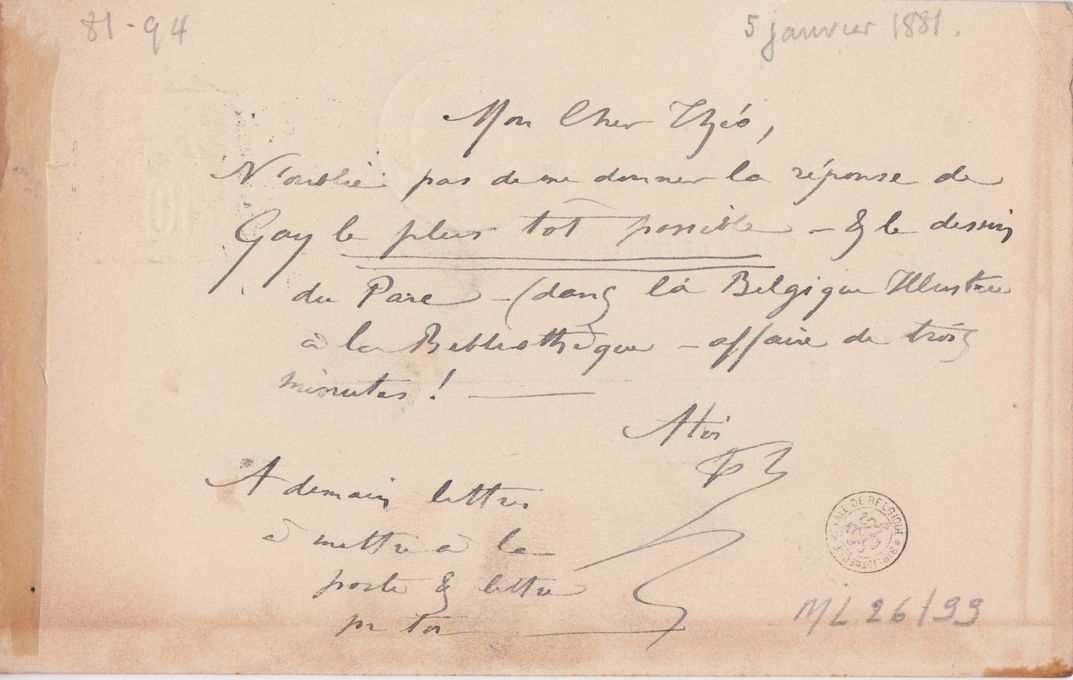 81-94
5 janvier 1881.
Mon Cher Théo,
N'oublie pas de me donner la réponse de
Gay le plus tot possible – & le dessin
du Parc – (dans la Belgique Illustrée
à la Bibliothèque – affaire de trois
minutes ! —
A toi
A demain lettres
à mettre à la
poste & lettre
pr toi —
BIBLIOTHEQUE ROYALE DE BELGIQUE
ML 26/99